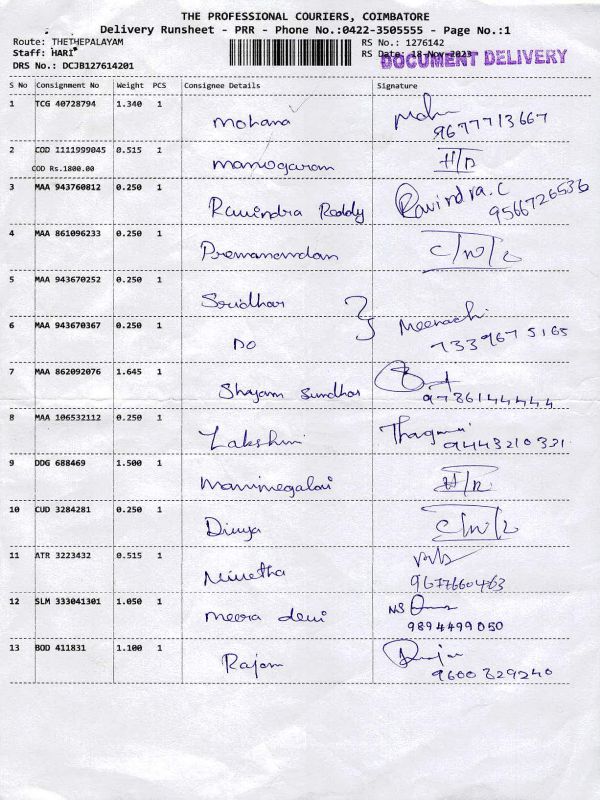 THE PROFESSIONAL COURIERS, COIMBATORE
Delivery Runsheet - PRR - Phone No.:0422-3505555 - Page No.:1
Route: THETHEPALAYAM RS No.: 1276142
Staff: HARI RS Date: 18-Nov-2023 DOCUMENT DELIVERY
DRS No.: DCJB127614201
S No Consignment No Weight PCS Consignee Details Signature
1 TCG 40728794 1.340 1
Mohana 9677713667
2 COD I111999045 0.515 1
COD Rs.1800.00 Manogaram H/D
3 MAA 943760812 0.250 1
Ravindra Reddy Ravindra.C
9566726536
4 MAA 861096233 0.250 1
Premanandan
5 MAA 943670252 0.250 1
Sridhar
6 MAA 943670367 0.250 1 Meenachi
DO 7339675165
7 MAA 862092076 1.645 1
Shyam Sundhar 9786144444
8 MAA 106532112 0.250 1
Lakshmi 9443210331
9 DDG 688469 1.500 1
Manimegalai H/D
10 CUD 3284281 0.250 1
Divya
11 ATR 3223432 0.515 1
Nivetha 9677660463
12 SLM 333041301 1.050 1
meera devi
9894499050
13 BOD 411831 1.100 1
Rajam 9600329240